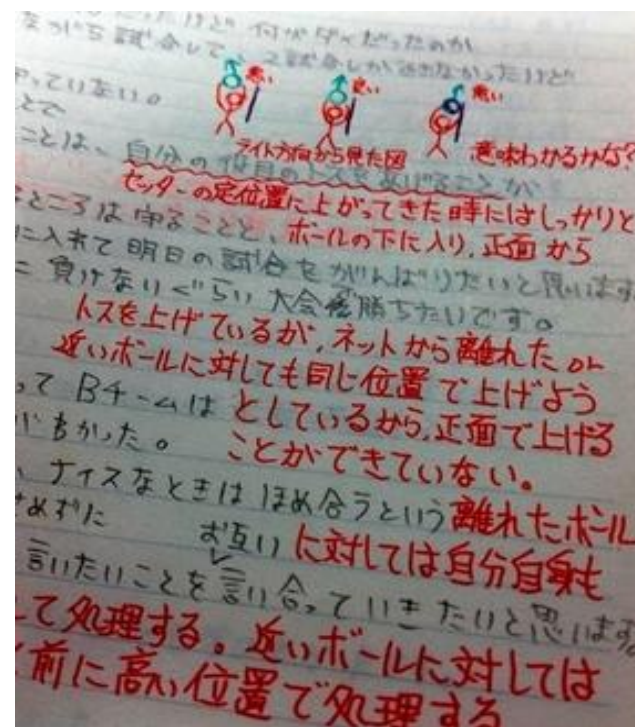 付がダメだったのか
なのに5試合して、2試合しか出きなかったけど
っていない。
とで
悪い 良い 悪い
ライト方向から見た図 意味わかるかな?
ことは、自分の役目のトスをあげることが
セッターの定位置に上がってきた時にはしっかりと
ところは守ることと、ボールの下に入り、正面から
に入れて明日の試合をがんばりたいと思います
に負けないぐらい大会優勝ちたいです。
トスを上げているが、ネットから離れた or
近いボールに対しても同じ位置で上げよう
って Bチームは としているから、正面で上げる
ことができていない。
、ナイスなときは ほめ合うという 離れたボール
めずに お互い に対しては自分自身も
言いたいことを言い合っていきたいと思います。
して処理する。近いボールに対しては
前に高い位置で処理する